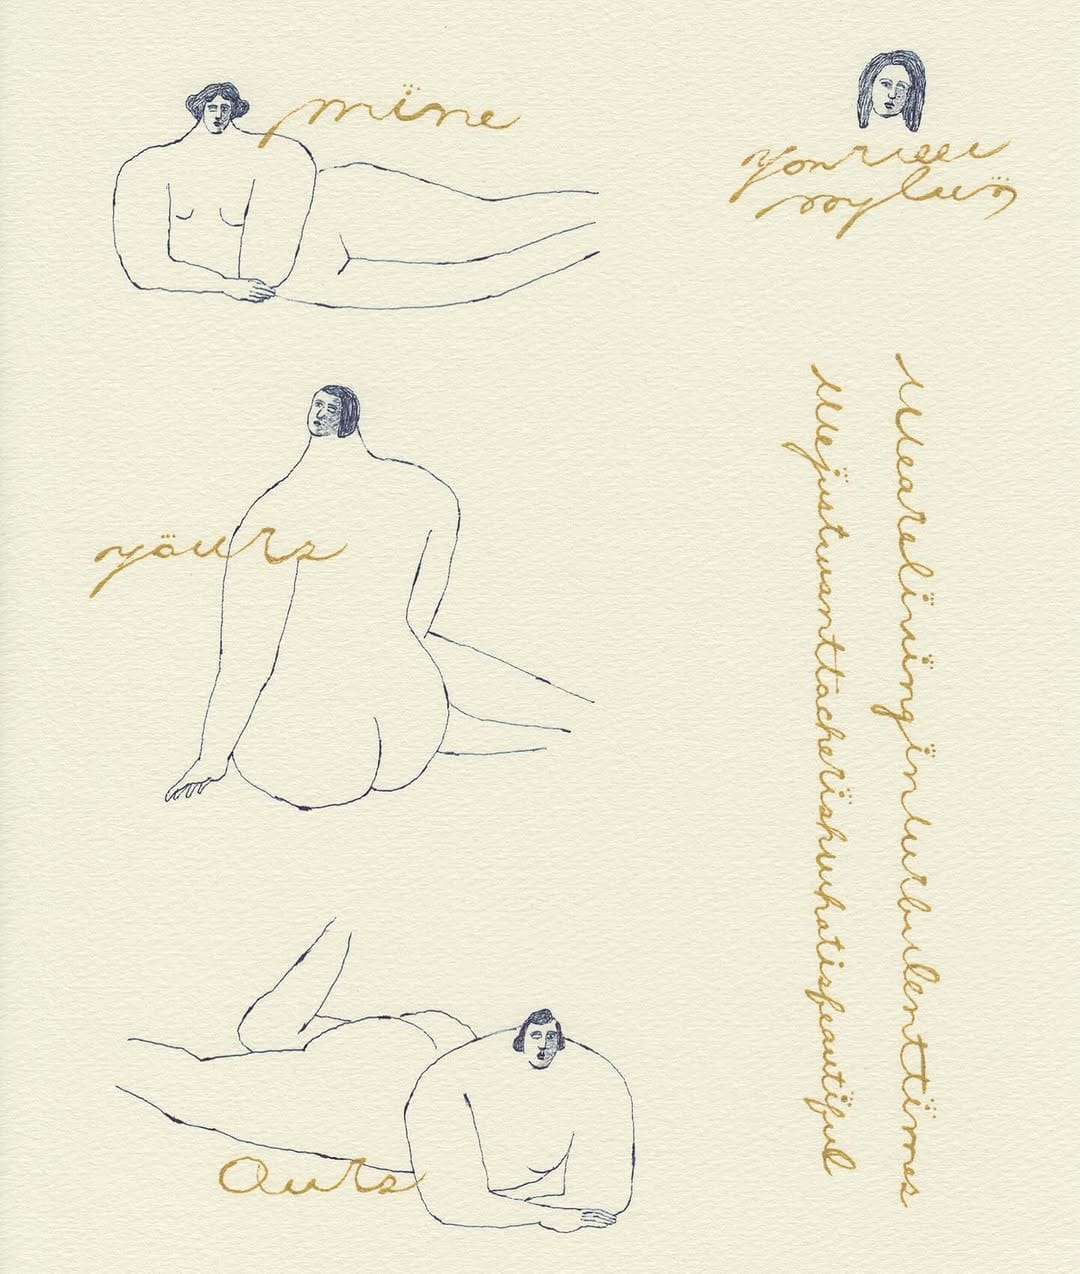 mïne
yöurs
Ours
Wearelivinginturbulenttimes
Wejustwanttocherishwhatisbeautiful